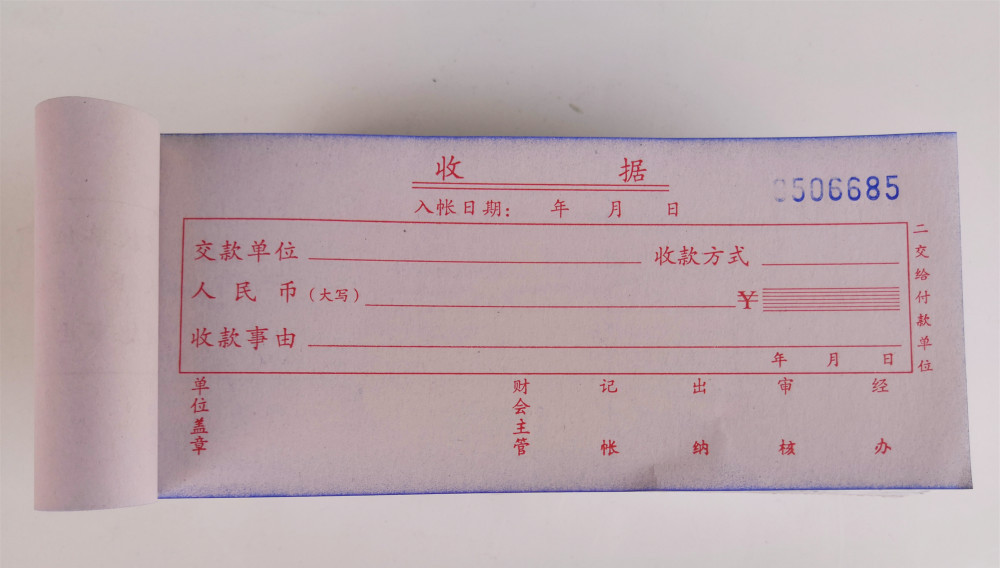 收 据
0506685
入帐日期： 年 月 日
交款单位 收款方式
人民币（大写） ¥
收款事由
年 月 日
二交给付款单位
单位盖章 财会主管 记帐 出纳 审核 经办